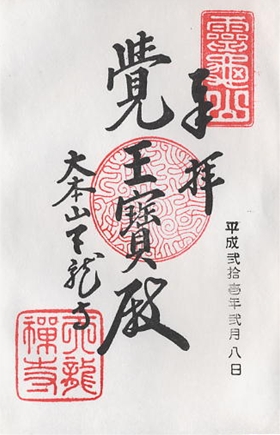 靈龜山
奉拝
平成弐拾壱年弐月八日
覺王寶殿
大本山天龍寺
天龍禪寺